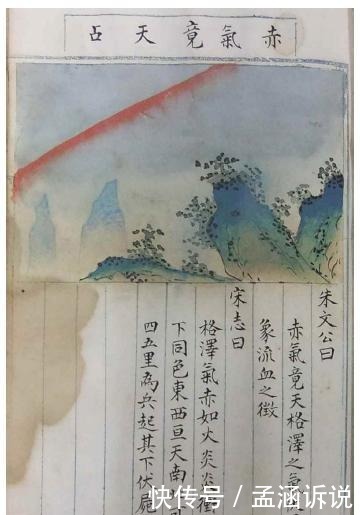 赤氣竟天占
朱文公曰
赤氣竟天格澤之氣
象流血之徵
宋志曰
格澤氣赤如火炎炎
下同色東西亘天南
四五里為兵起其下伏屍
快传号 / 孟涵诉说